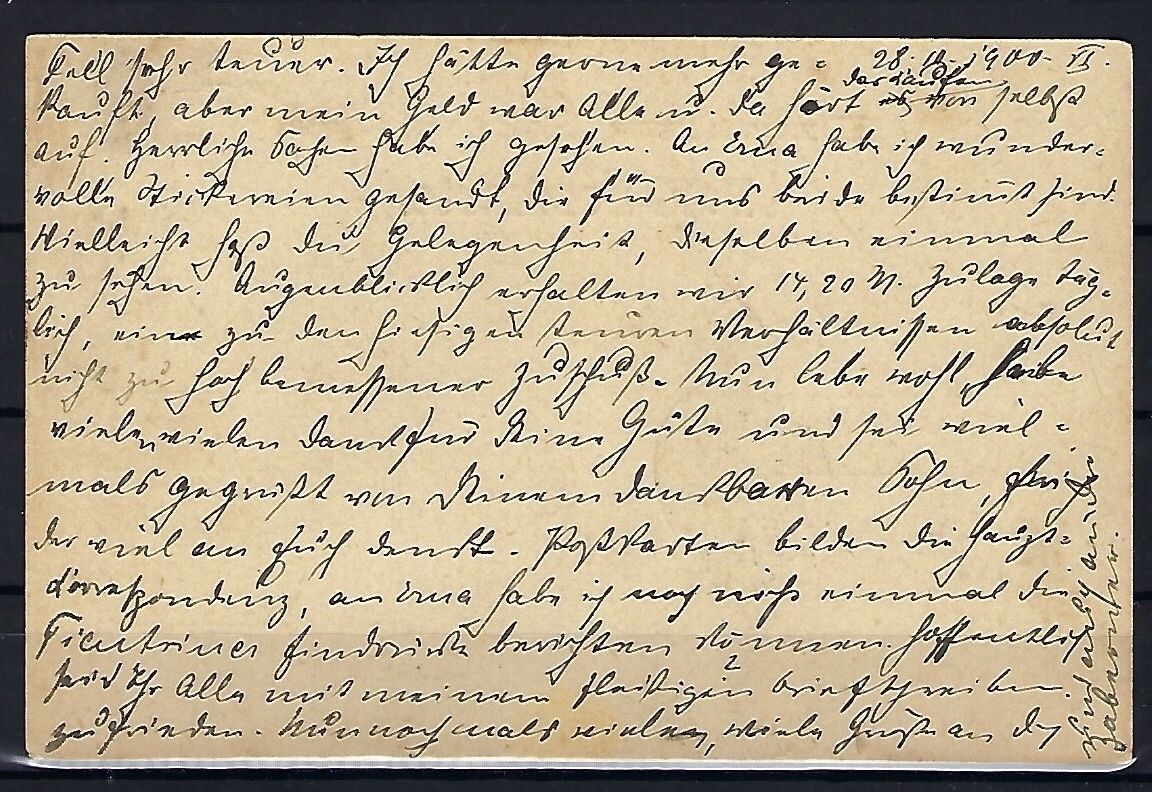 Teil sehr teuer. Ich hätte gerne mehr ge= 28. 12. 1900. VI.
das Kaufen
kauft, aber mein Geld war Alle u. da hört es von selbst
auf. Herrliche Sachen habe ich gesehen. An Erna habe ich wunder=
volle Stickereien gesandt, die für uns beide bestimt sind.
Vielleicht hast du Gelegenheit, dieselben einmal
zu sehen. Augenblicklich erhalten wir 14,20 M. Zulage täg=
lich, ein zu den hiesigen teuren Verhältnissen absolut
nicht zu hoch bemessener Zuschuß. Nun lebe wohl, habe
vielen, vielen Dank für Deine Güte und sei viel=
mals gegrüßt von Deinem dankbaren Sohn,
der viel an Euch denkt. Postkarten bilden die Haupt=
Korrespondenz, an Erna habe ich noch nicht einmal die
Tientsiner Eindrücke berichten können. Hoffentlich
seid Ihr Alle mit meinem fleißigen Briefschreiben
2
zufrieden. Nun nochmals vielen, viele Grüße an Dich